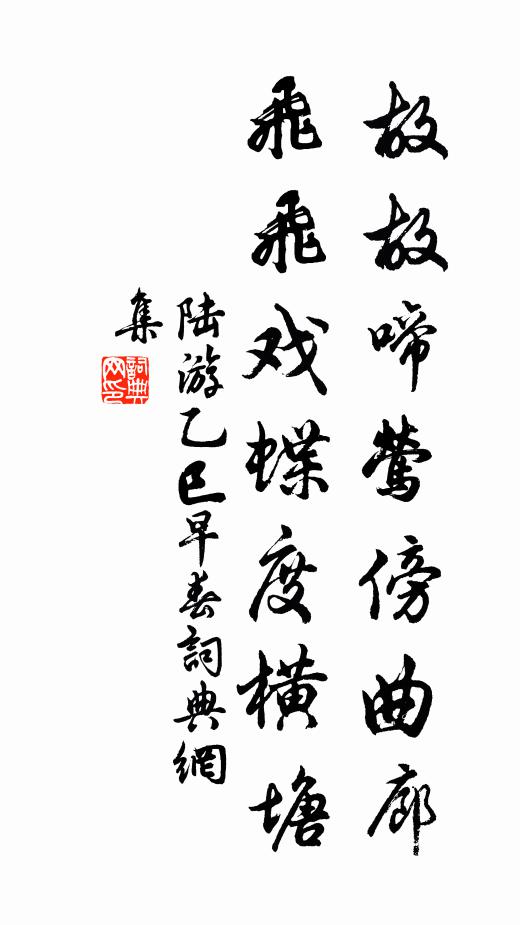 故故啼莺傍曲廊
飛飛戏蝶度横塘
陆游乙巳早春詞典網
集
詞典
网印